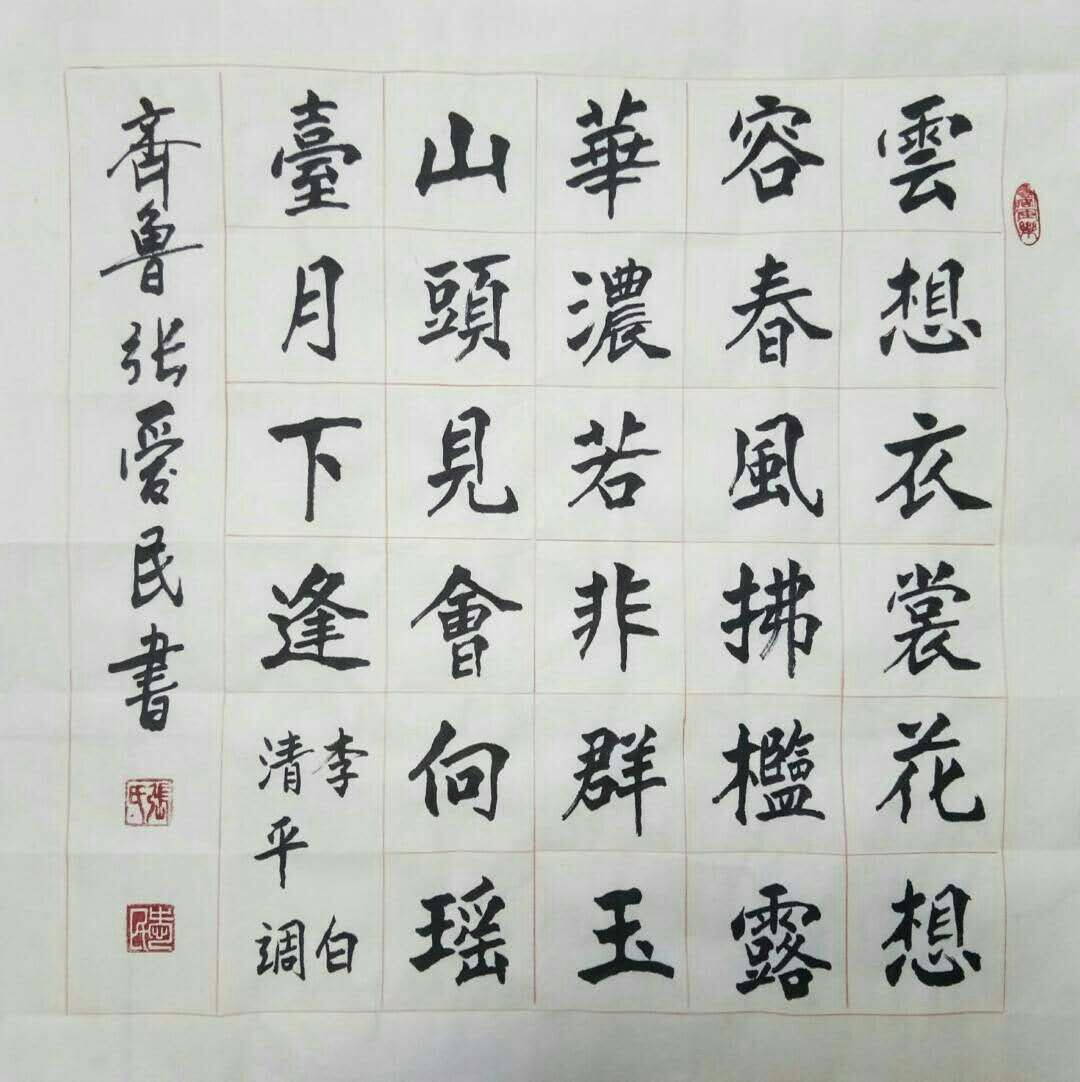 雲想衣裳花想
容春風拂檻露
華濃若非群玉
山頭見會向瑶
臺月下逢
李白
清平調
齊魯張愛民書
張氏